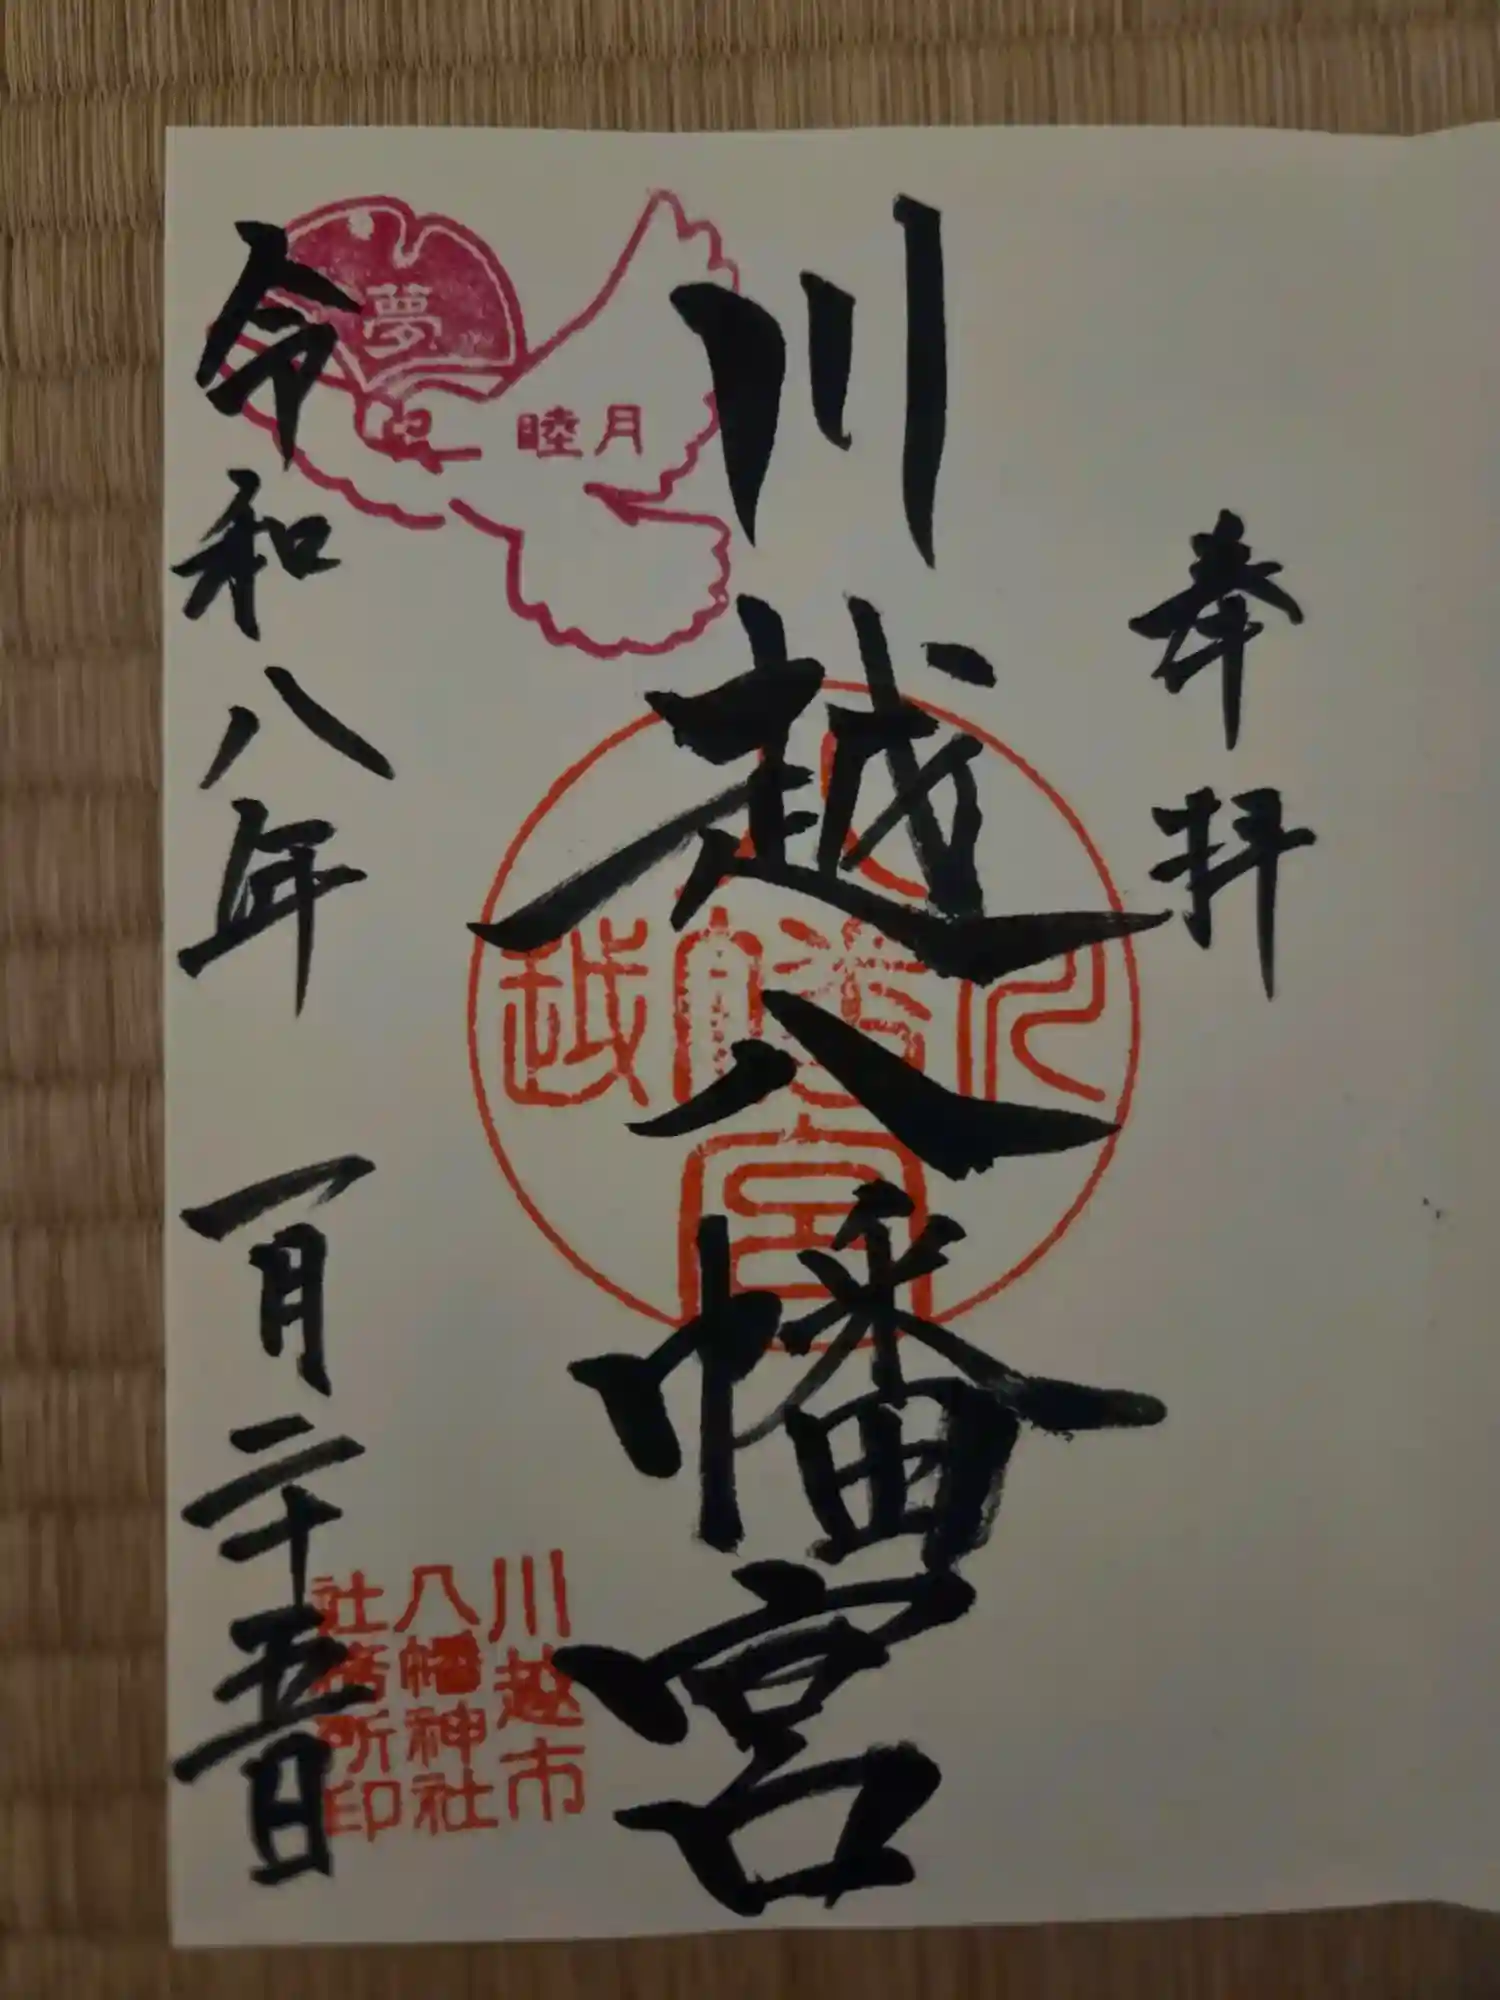 奉拝
川越八幡宮
令和八年 一月二十五日
夢
睦月
八
越 幡 八
宮
川越市
八幡神社
社務所印